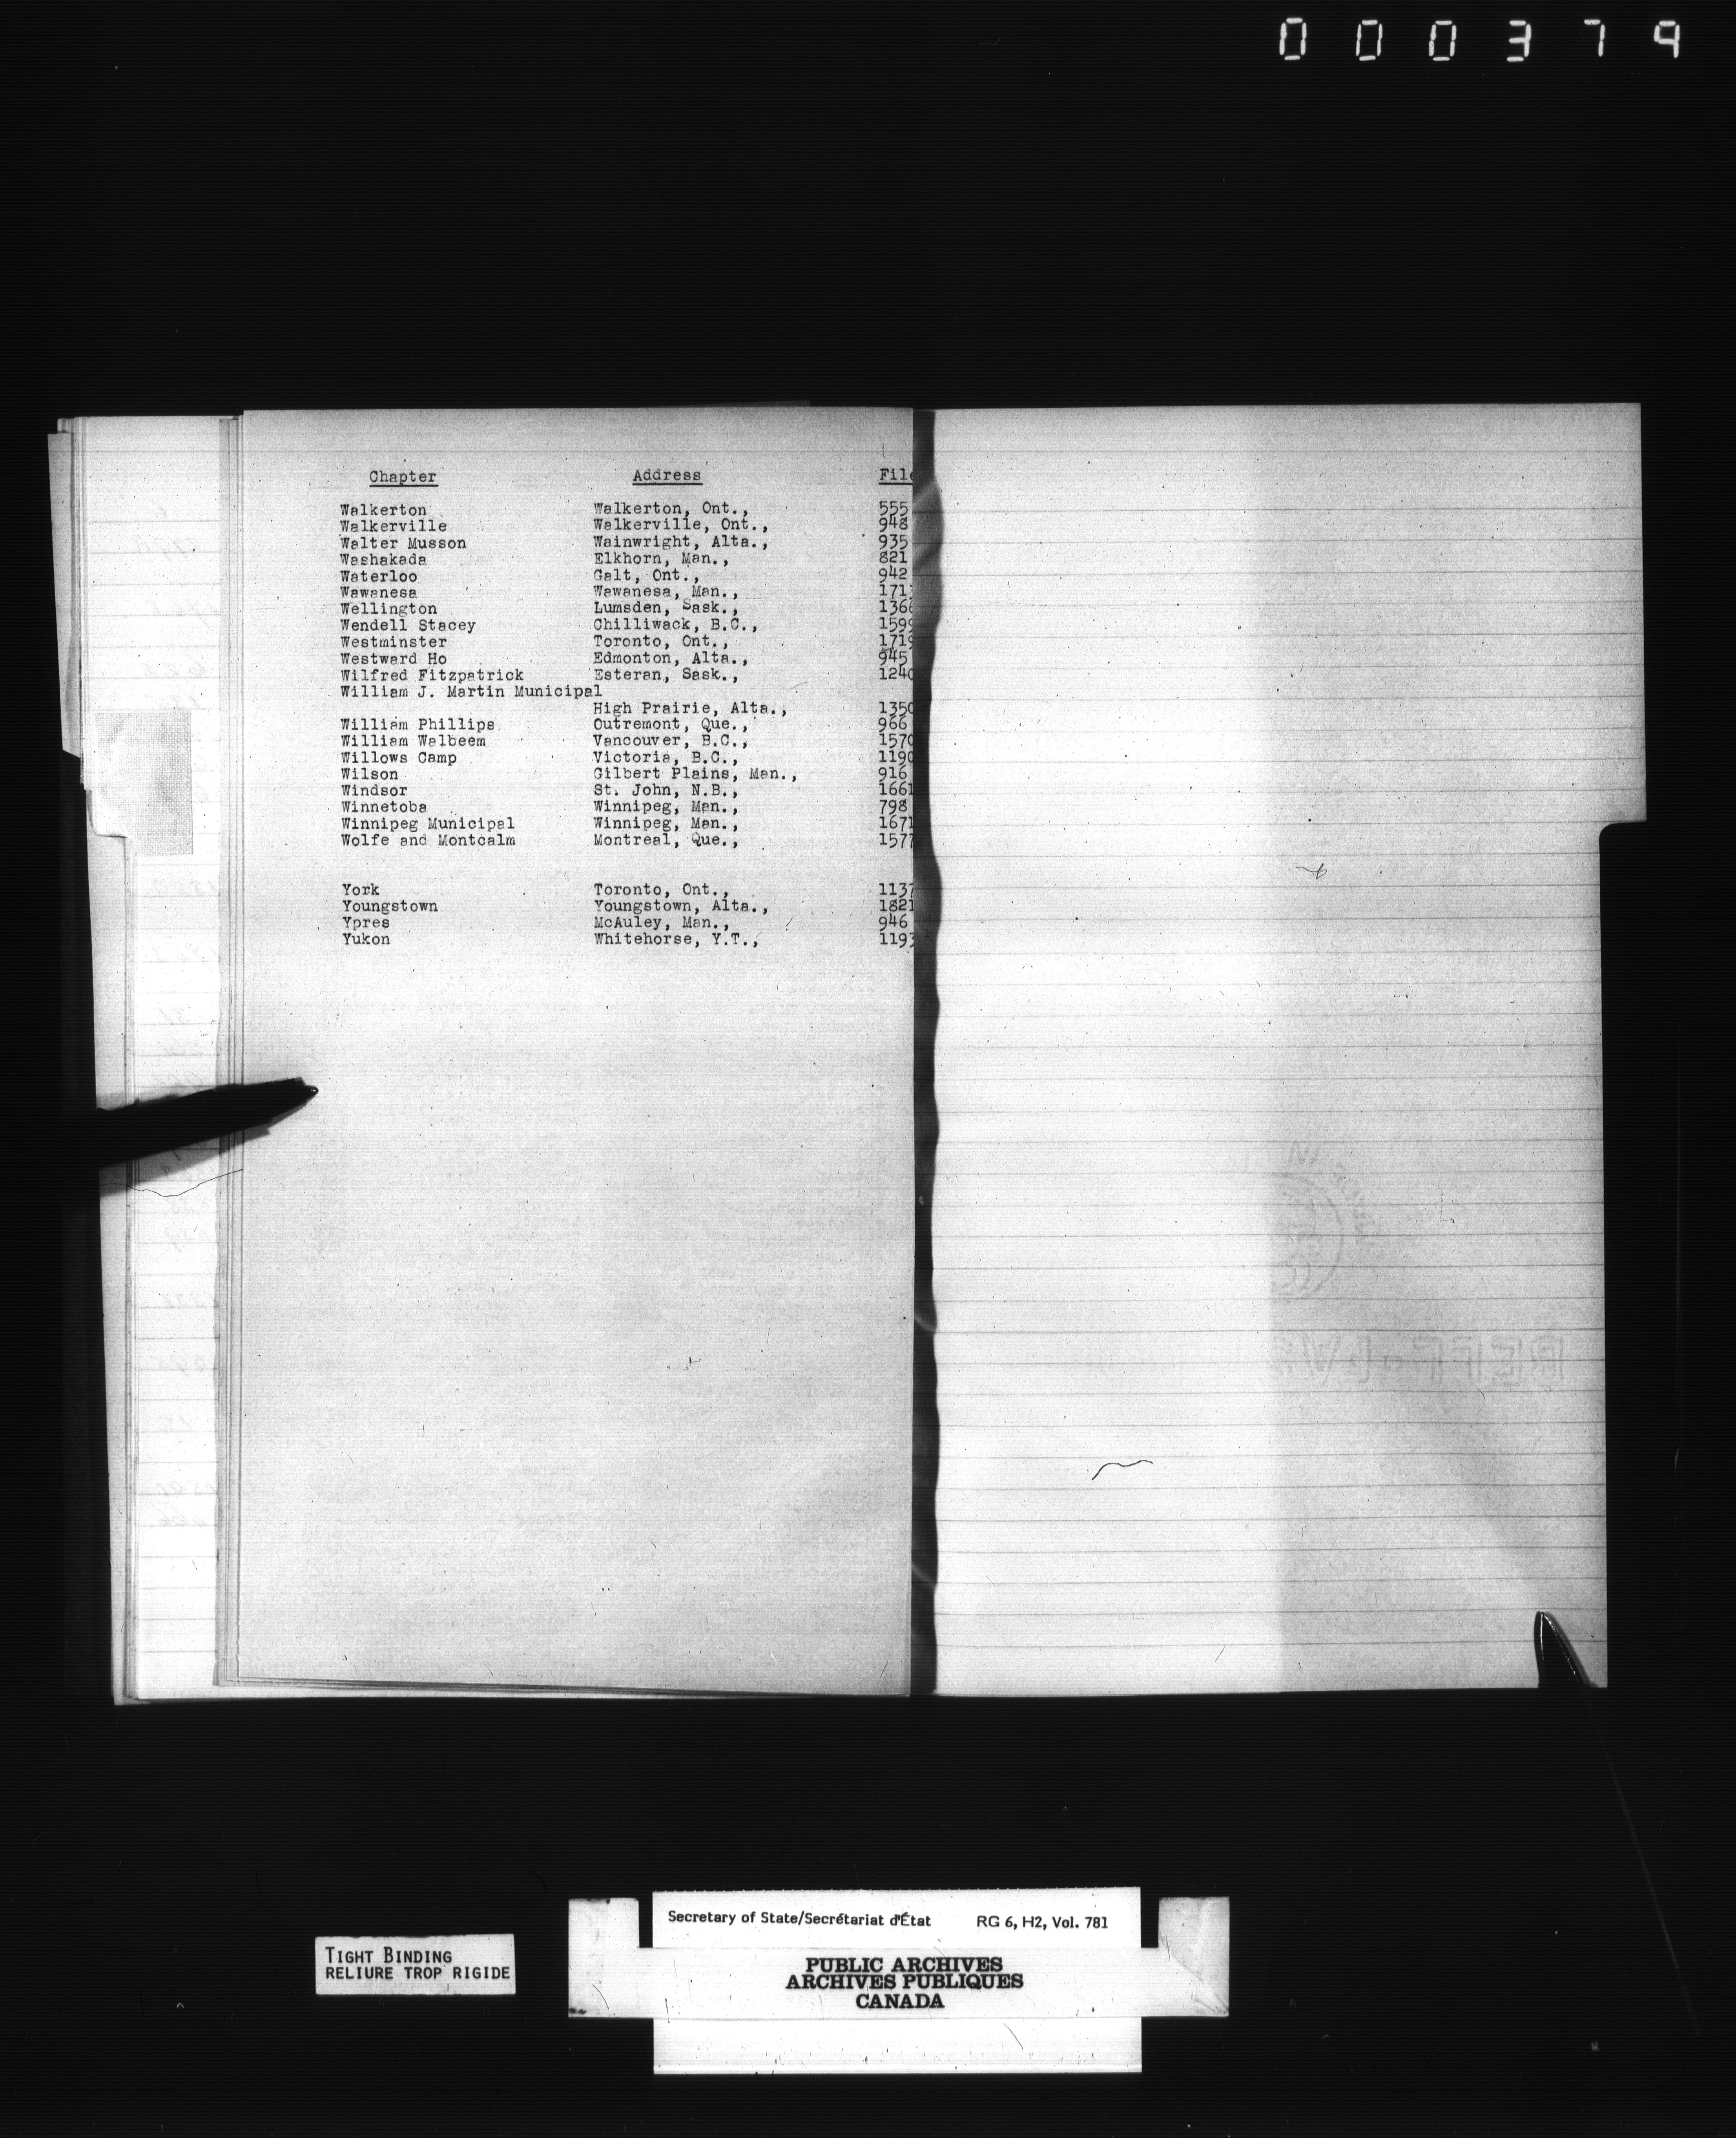 000379
Chapter Address File
Walkerton Walkerton, Ont., 555
Walkerville Walkerville, Ont., 948
Walter Musson Wainwright, Alta., 935
Washakada Elkhorn, Man., 821
Waterloo Galt, Ont., 942
Wawanesa Wawanesa, Man., 1713
Wellington Lumsden, Sask., 1366
Wendell Stacey Chilliwack, B.C., 1599
Westminster Toronto, Ont., 1719
Westward Ho Edmonton, Alta., 945
Wilfred Fitzpatrick Esteran, Sask., 1240
William J. Martin Municipal
High Prairie, Alta., 1350
William Phillips Outremont, Que., 966
William Walbeem Vancouver, B.C., 1570
Willows Camp Victoria, B.C., 1190
Wilson Gilbert Plains, Man., 916
Windsor St. John, N.B., 1661
Winnetoba Winnipeg, Man., 798
Winnipeg Municipal Winnipeg, Man., 1671
Wolfe and Montcalm Montreal, Que., 1577
York Toronto, Ont., 1137
Youngstown Youngstown, Alta., 1821
Ypres McAuley, Man., 946
Yukon Whitehorse, Y.T., 1193
Secretary of State/Secrétariat d'État RG 6, H2, Vol. 781
TIGHT BINDING
RELIURE TROP RIGIDE
PUBLIC ARCHIVES
ARCHIVES PUBLIQUES
CANADA